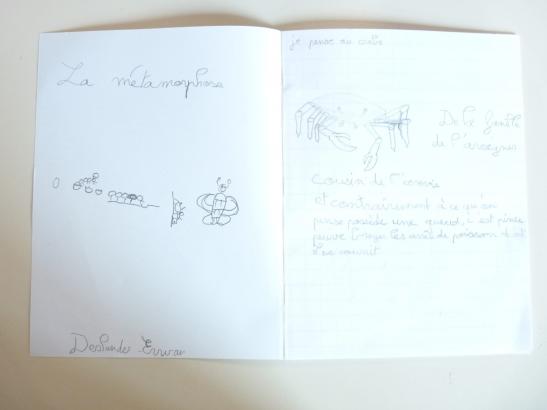 La métamorphose
Deslandes Erwan
je pense au crabe
De la famille
de l'araignée
Cousin de l'araignée
et contrairement à ce qu'on
pense possède une queue, c'est pince
peuve broyer les arrêt de poisson
se nourrit